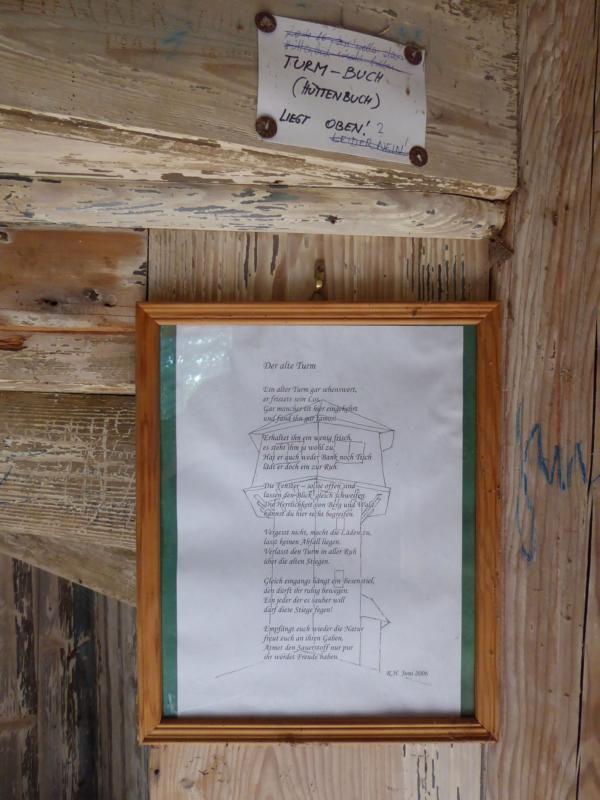 TURM-BUCH
(HÜTTENBUCH)
LIEGT OBEN! ?
LEIDER NEIN!
Der alte Turm
Ein alter Turm gar sehenswert,
er fristets sein Los.
Gar mancher ist hier eingekehrt
und fand ihn gar famos!
Erhaltet ihn ein wenig frisch,
es steht ihm ja wohl zu.
Hat er auch weder Bank noch Tisch
lädt er doch ein zur Ruh.
Die Fenster – so sie offen sind
lassen den Blick gleich schweifen.
Die Herrlichkeit von Berg und Wald
kannst du hier recht begreifen.
Vergesst nicht, macht die Läden zu,
lasst keinen Abfall liegen.
Verlasst den Turm in aller Ruh
über die alten Stiegen.
Gleich eingangs hängt ein Besenstiel,
den dürft ihr ruhig bewegen.
Ein jeder der es sauber will
darf diese Stiege fegen!
Empfängt euch wieder die Natur
freut euch an ihren Gaben.
Atmet den Sauerstoff nur pur
ihr werdet Freude haben.
R.H. Juni 2006